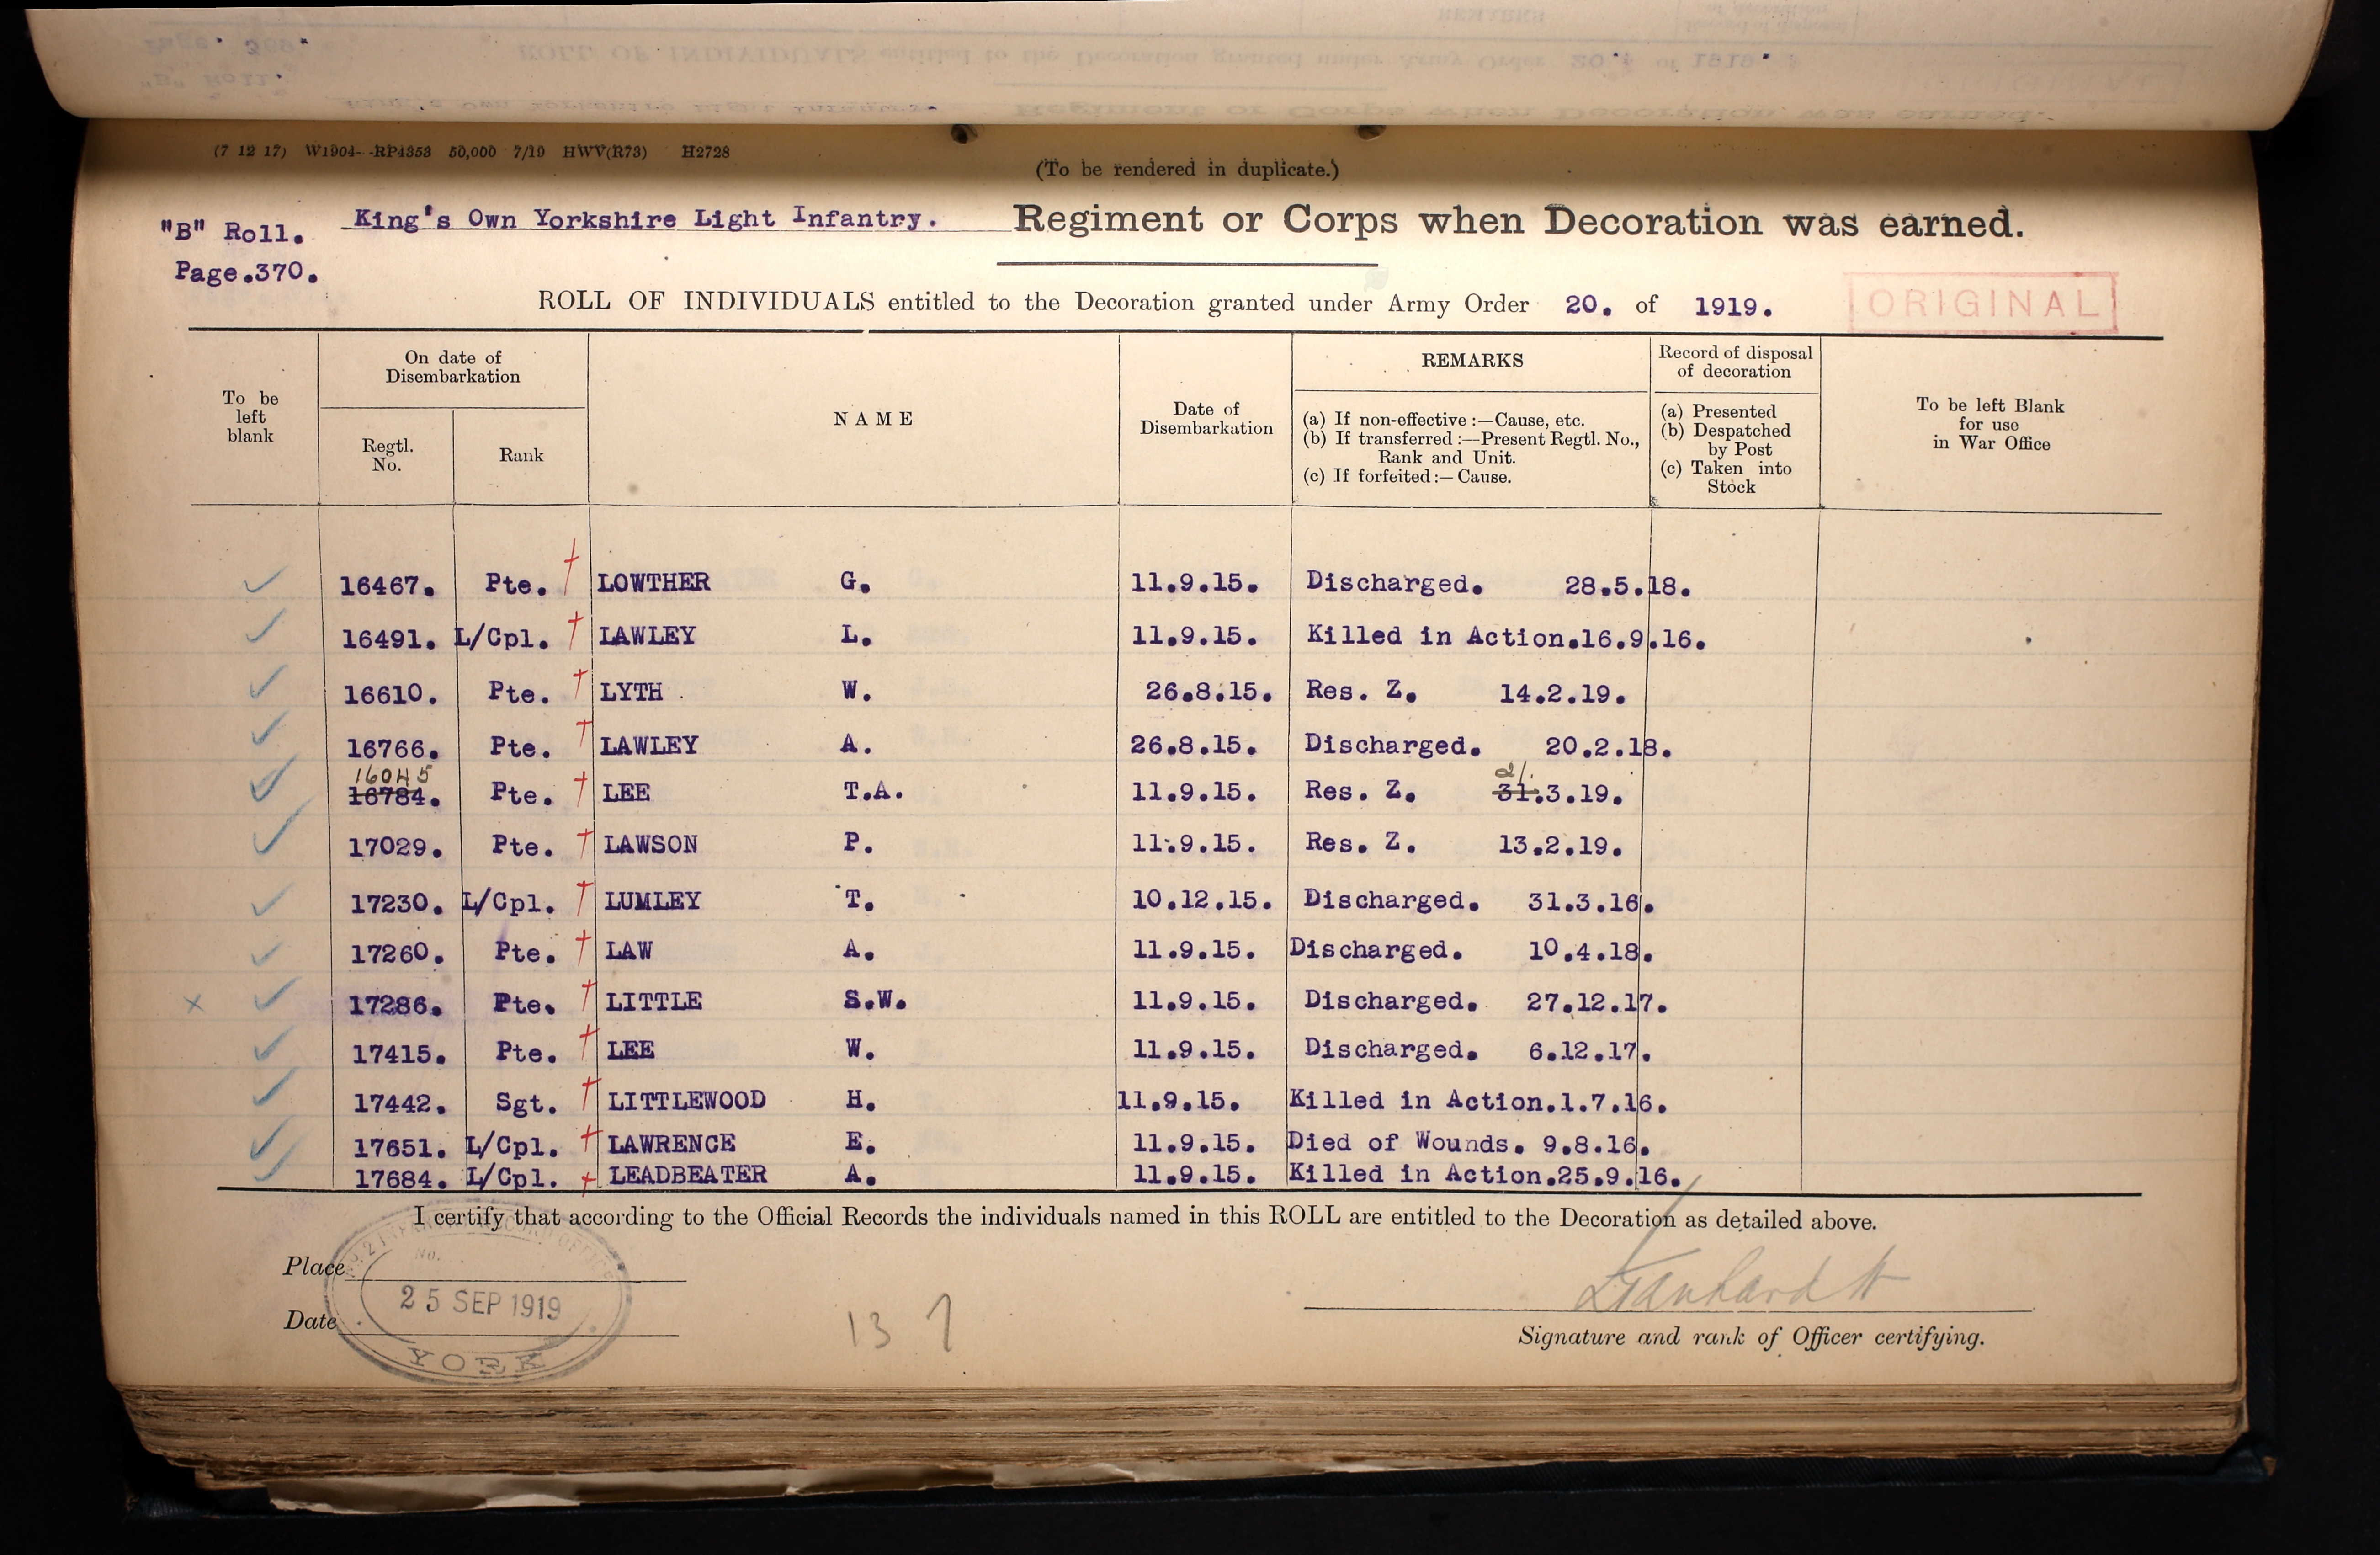 (7 12 17) W1904--RP4353 50,000 7/19 HWV(R73) H2728
(To be rendered in duplicate.)
"B" Roll. King's Own Yorkshire Light Infantry. Regiment or Corps when Decoration was earned.
Page.370.
ROLL OF INDIVIDUALS entitled to the Decoration granted under Army Order 20. of 1919.
ORIGINAL
To be left blank
On date of Disembarkation
Regtl. No.
Rank
NAME
Date of Disembarkation
REMARKS
(a) If non-effective :—Cause, etc.
(b) If transferred :—Present Regtl. No.,
Rank and Unit.
(c) If forfeited :— Cause.
Record of disposal
of decoration
(a) Presented
(b) Despatched
by Post
(c) Taken into
Stock
To be left Blank
for use
in War Office
16467. Pte. LOWTHER G. 11.9.15. Discharged. 28.5.18.
16491. L/Cpl. LAWLEY L. 11.9.15. Killed in Action.16.9.16.
16610. Pte. LYTH W. 26.8.15. Res. Z. 14.2.19.
16766. Pte. LAWLEY A. 26.8.15. Discharged. 20.2.18.
16045
16784. Pte. LEE T.A. 11.9.15. Res. Z. 31.3.19.
17029. Pte. LAWSON P. 11.9.15. Res. Z. 13.2.19.
17230. L/Cpl. LUMLEY T. 10.12.15. Discharged. 31.3.16.
17260. Pte. LAW A. 11.9.15. Discharged. 10.4.18.
x 17286. Pte. LITTLE S.W. 11.9.15. Discharged. 27.12.17.
17415. Pte. LEE W. 11.9.15. Discharged. 6.12.17.
17442. Sgt. LITTLEWOOD H. 11.9.15. Killed in Action.1.7.16.
17651. L/Cpl. LAWRENCE E. 11.9.15. Died of Wounds. 9.8.16.
17684. L/Cpl. LEADBEATER A. 11.9.15. Killed in Action.25.9.16.
I certify that according to the Official Records the individuals named in this ROLL are entitled to the Decoration as detailed above.
Place
No.
25 SEP 1919
Date
YORK
13
Signature and rank of Officer certifying.